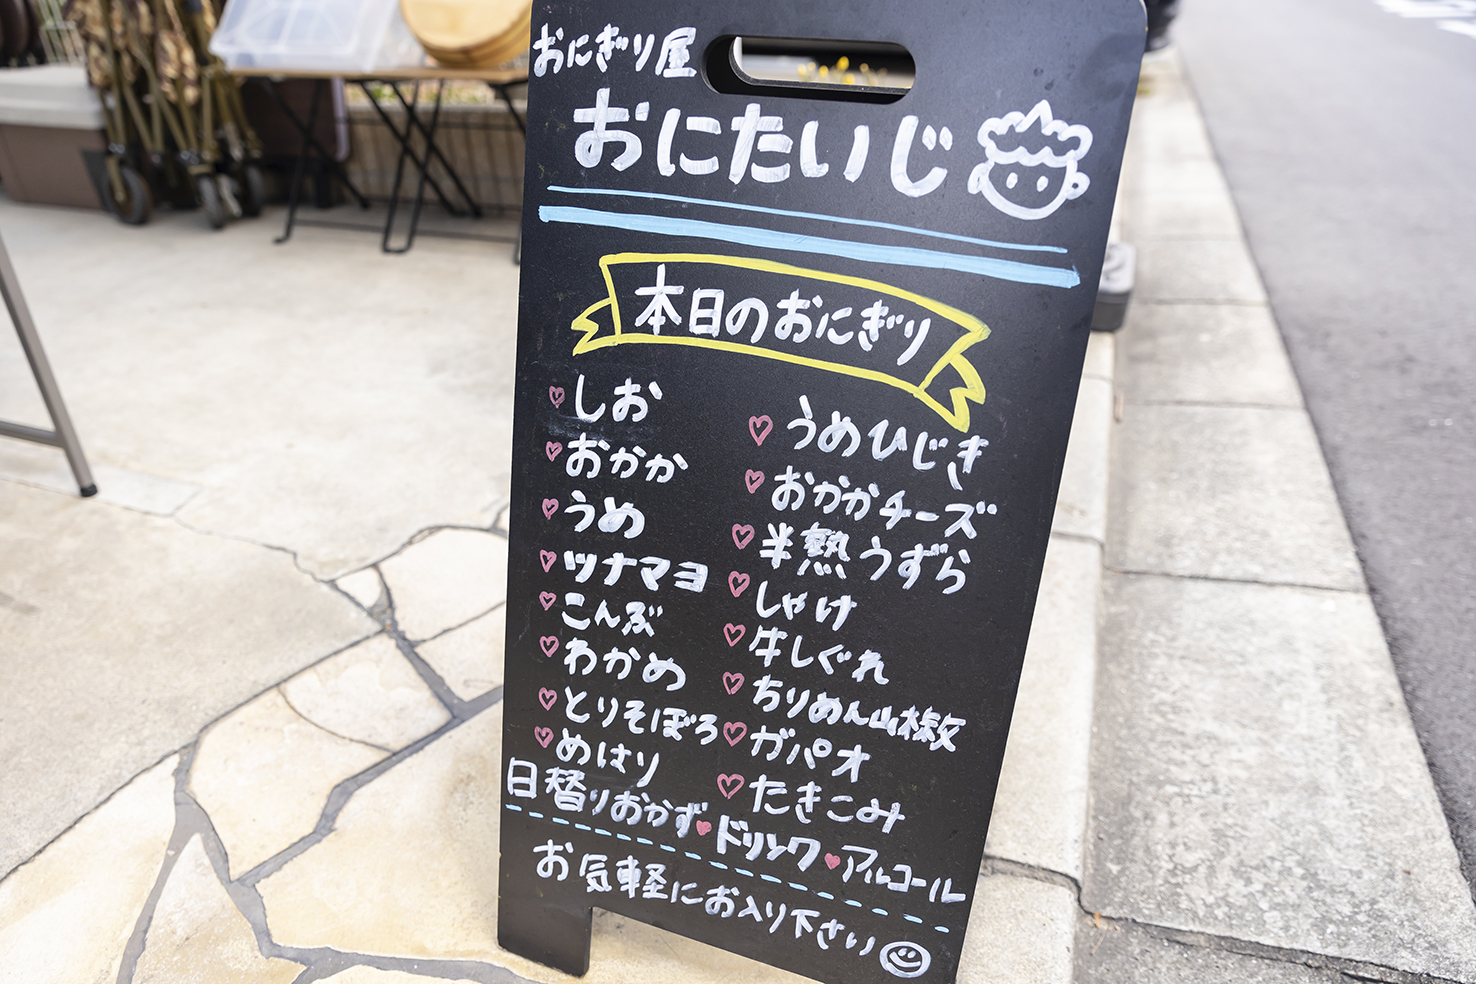 おにぎり屋
おにたいじ
本日のおにぎり
しお
おかか
うめ
ツナマヨ
こんぶ
わかめ
とりそぼろ
めはり
うめひじき
おかかチーズ
半熟うずら
しゃけ
牛しぐれ
ちりめん山椒
ガパオ
たきこみ
日替りおかず♥ドリンク♥アルコール
お気軽にお入り下さい